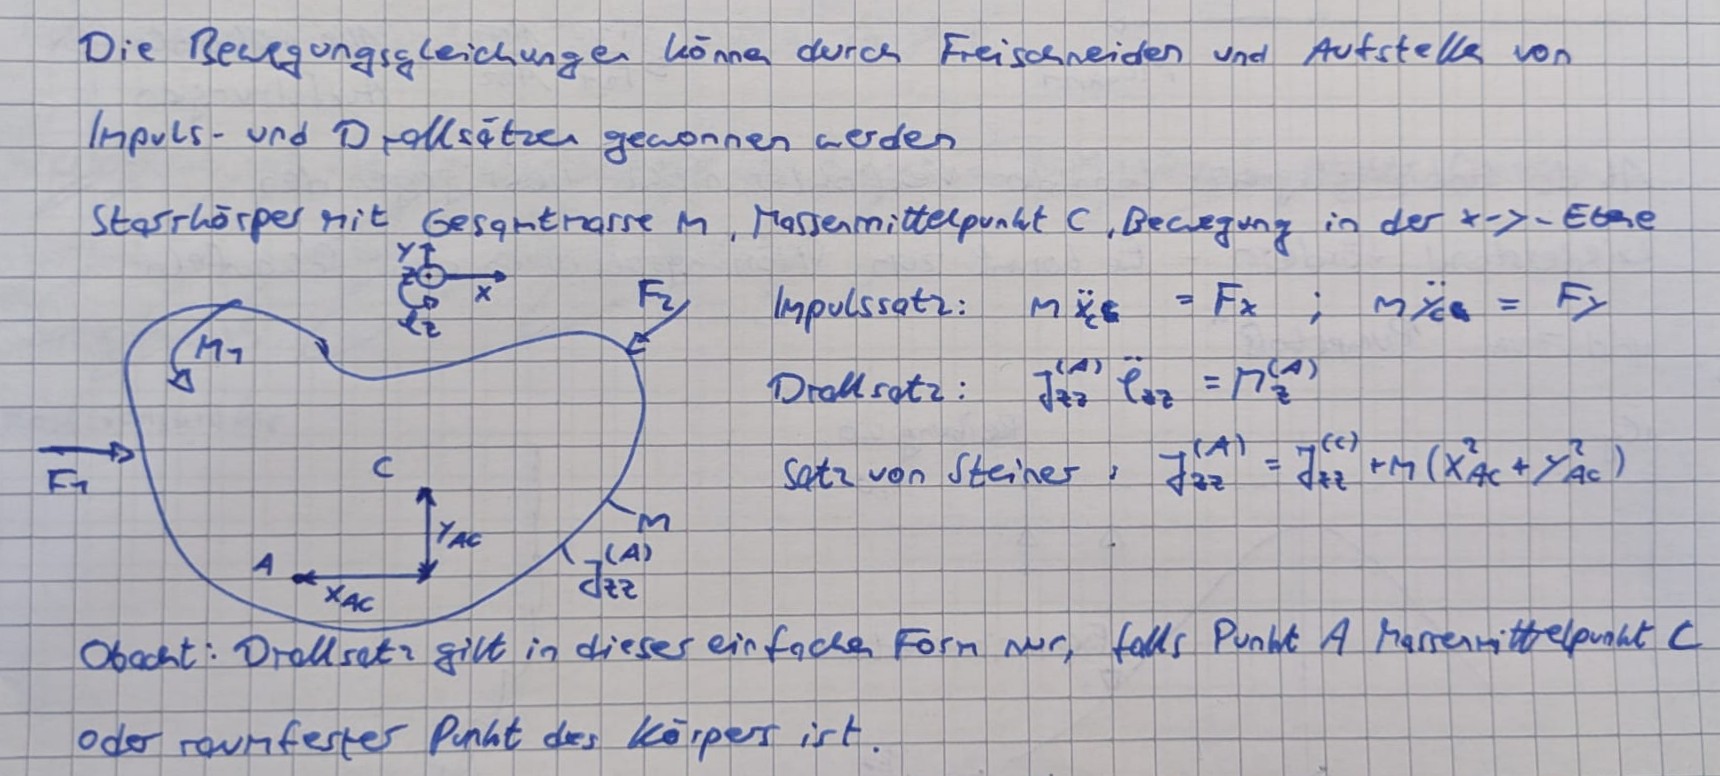 Die Bewegungsgleichungen können durch Freischneiden und Aufstellen von
Impuls- und Drallsätzen gewonnen werden
Starrkörper mit Gesamtmasse M, Massenmittelpunkt C, Bewegung in der x-y-Ebene
y
z
x
φz
F2
Impulssatz: m ẍc = Fx ; m ÿc = Fy
M1
Drallsatz: Jzz^(A) φ̈zz = Mz^(A)
F1
C
Satz von Steiner: Jzz^(A) = Jzz^(C) + M (x²AC + y²AC)
M
yAC
A
xAC
Jzz^(A)
Obacht: Drallsatz gilt in dieser einfachen Form nur, falls Punkt A Massenmittelpunkt C
oder raumfester Punkt des Körpers ist.